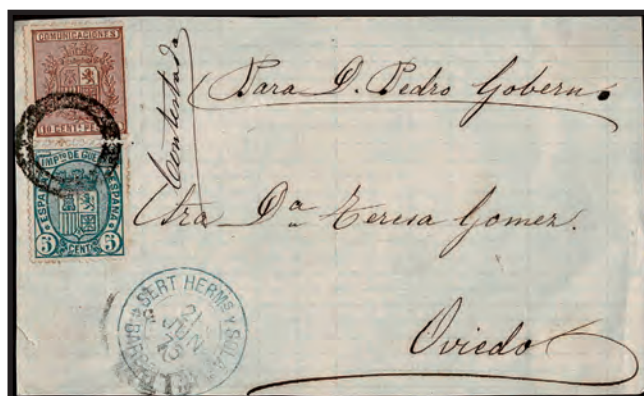 COMUNICACIONES
10 CENTS PES
IMPTO DE GUE
ESPAÑA ESPAÑA
5 CENTS 5
Contestada
Para D. Pedro Gobern
Sra Dª Teresa Gomez.
Oviedo
SERT HERMS Y SOLÁ
21
JUN